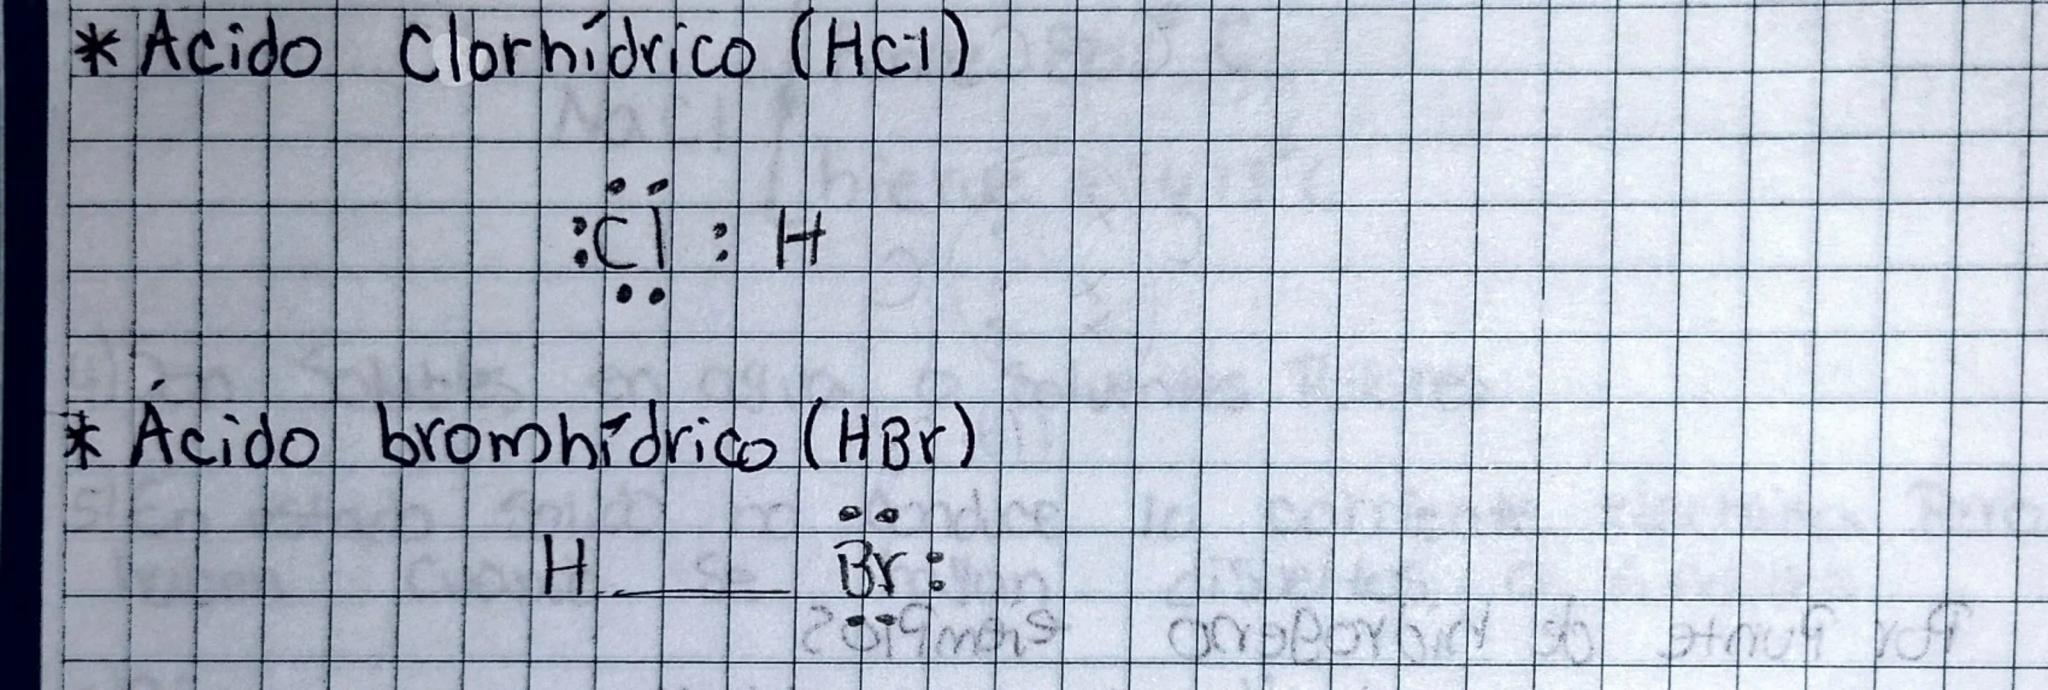 * Acido Clorhídrico (HCl)
:Cl : H
* Ácido bromhídrico (HBr)
H ___ Br: